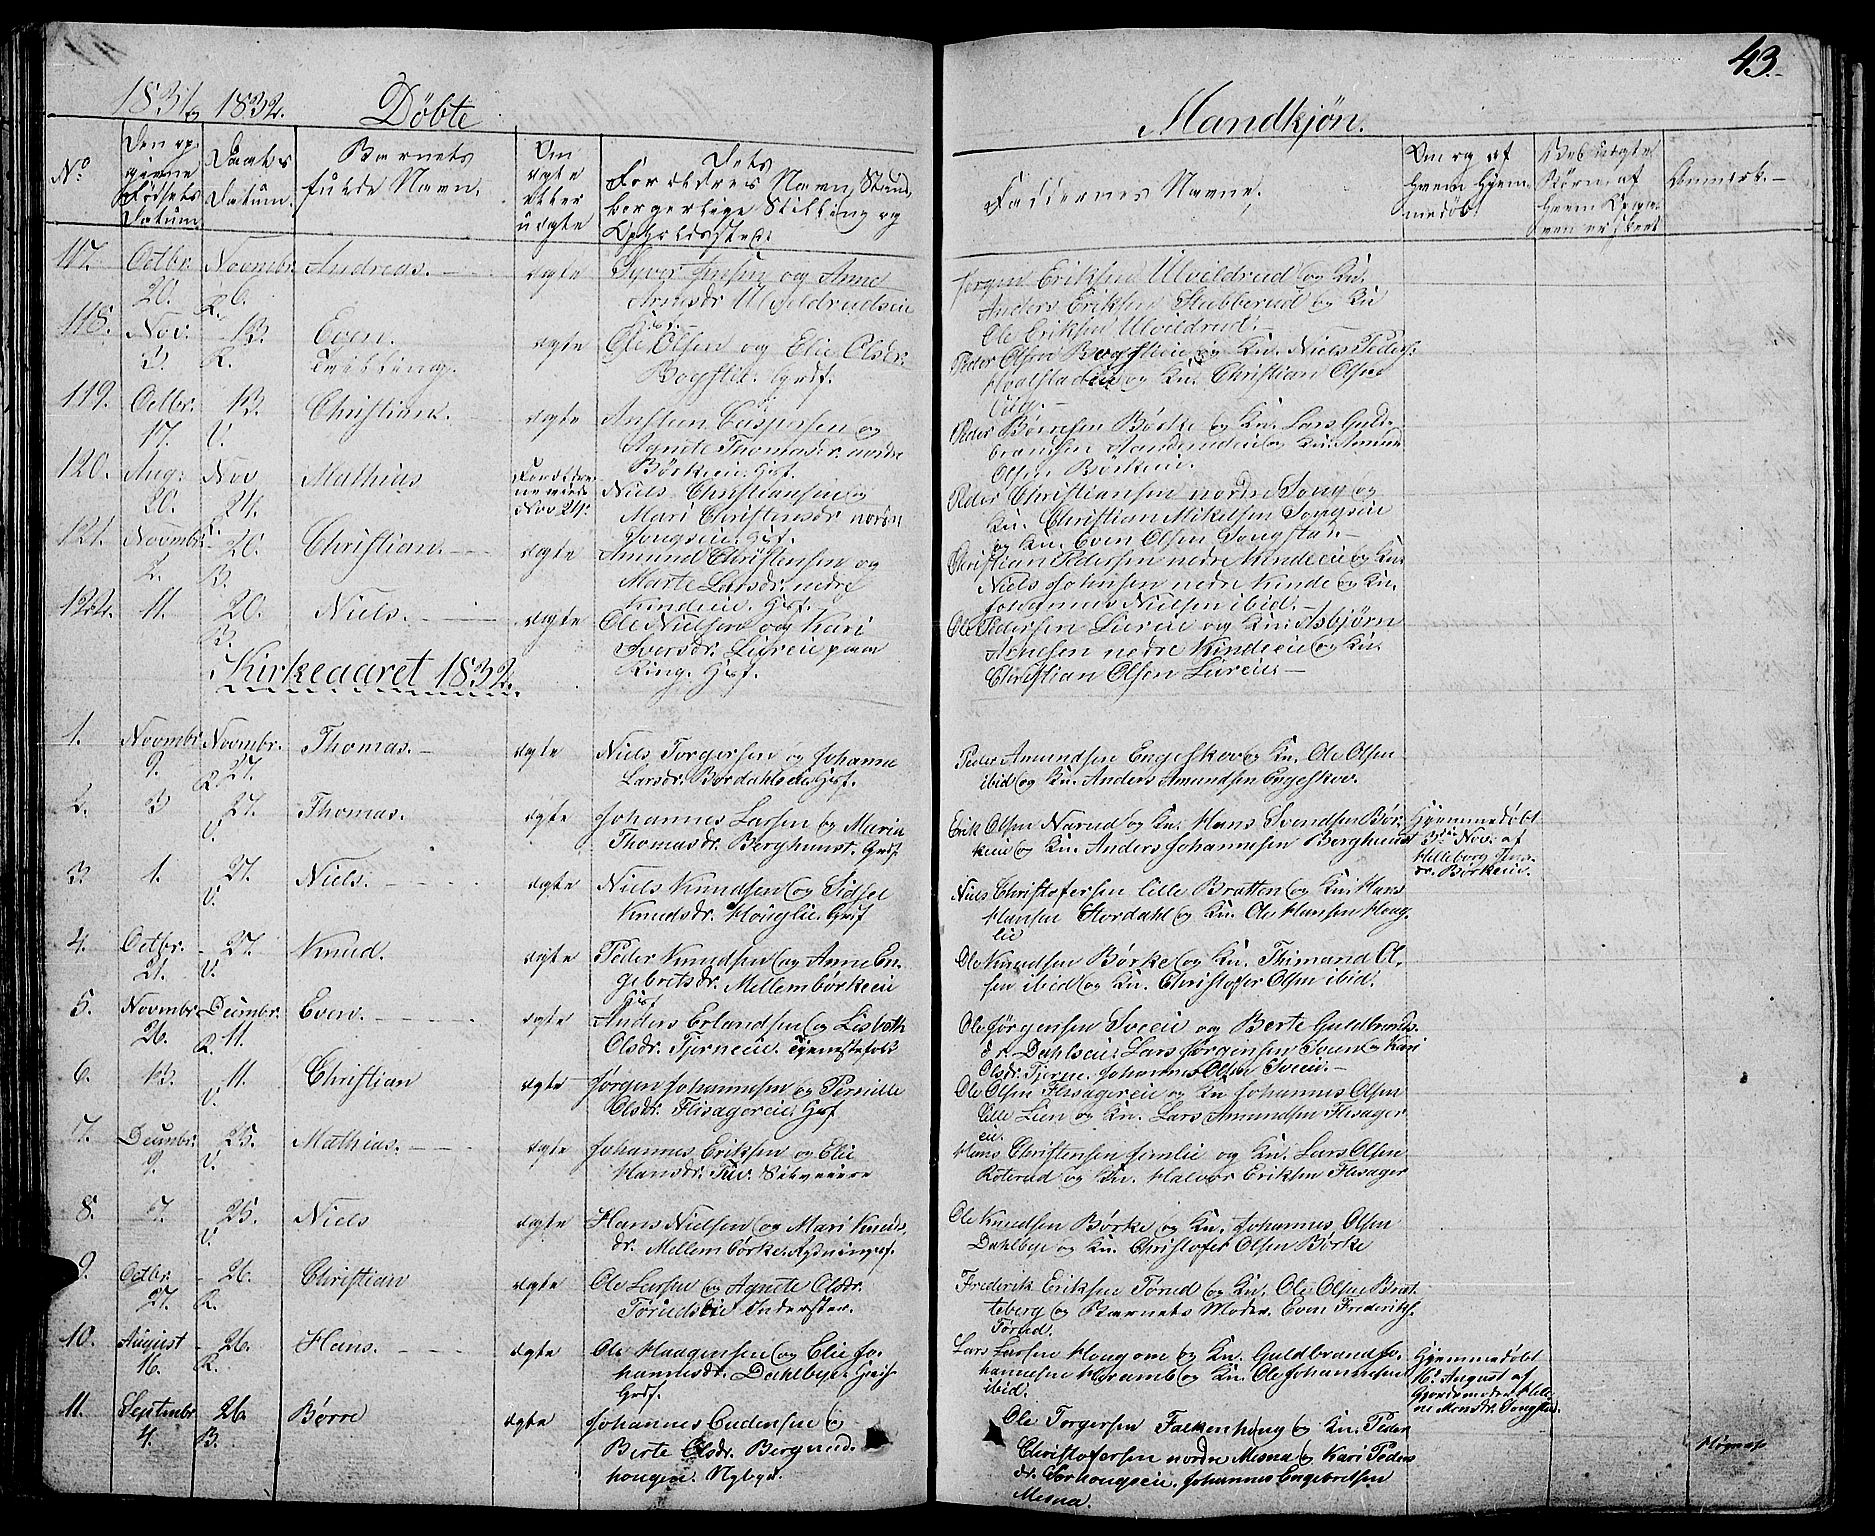 43.
1831 og 1832. Døbte Mandkjøn.
No
Den op-
givne
Fødsels
Datum
Daabs
Datum.
Barnets
fulde Navn.
Om
ægte
eller
uægte
Dets
Forældres Navn, Stand,
borgerlige Stilling og
Opholdssted.
Faddernes Navne.
Om og af
hvem hjem-
medøbt
Anmærk.
117. Octbr. 20. Novembr. 6. R. Andreas. ægte
Syver Jensen og Anne
Arnesdr Ulvildrudseie
Husf.
Jørgen Eriksen Ulvildrud og Kn.
Anders Eriksen Stubberud og Kn
Ole Eriksen Ulvildrud.
118. Nov. 13. R. Even. Tvilling. ægte
Ole Olsen og Elie Olsdr.
Bogstie. Grdf.
Peder Olsen og Kn. Niels Peders.
og Kn. Christian Olsen
119. Octbr. 17. 13. V. Christian. ægte
Caspersen og
Agnete Thomasdr. nordre
Børkeeie. Husf.
Peder Børresen Børke og Kn. Lars Guld-
bransen og Kn. Amun
Olsen Børkeeie.
120. Aug. 20. Nov 24. Mathias
Forældre-
ne viede
Nov 24.
Niels Christiansen og
Mari Christensdr nordre
Songseie. Husf.
Peder Christiansen nordre Song og
Kn. Christian Mikelsen Songseie
og Kn. Even Olsen Songstad.
121. Novembr. 2. 20. B. Christian. ægte
Amund Christensen og
Marte Larsdr. nedre
Kindeie. Husf.
Christian Pedersen nedre Kindeeie og Kn.
Niels Johnsen nedre Kinde og Kn.
Johannes Nielsen ibid.
122. 11. 20. B. Niels. ægte
Ole Nielsen og Kari
Iversdr. Lureie paa
Ring. Husf.
Ole Pedersen Lureie og Kn. Asbjørn
Arnesen nedre Kindeeie og Kn.
Christian Olsen Lureie
Kirkeaaret 1832.
1. Novembr 9. Novembr. 27. R. Thomas. ægte
Niels Torgersen og Johanne
Larsdr. Bordahlseie Husf.
Peder Amundsen Engeskov og Kn. Ole Olsen
ibid og Kn. Anders Amundsen Engeskov.
2. 3 27. V. Thomas. ægte
Johannes Larsen og Marie
Thomasdr. Berghunst. Grdf.
Erik Olsen Narud og Kn. Hans Svendsen Bør-
keeie og Kn. Anders Johannesen Berghunst
Hjemmedøbt
3die Nov. af
Hilleborg Jens-
dr. Børkeeie.
3. 1. 27. V. Niels. ægte
Niels Knudsen og Sidsel
Knudsdr. Houglie. Grdf
Niels Christofersen lille Bratten og Kn. Hans
Hansen Stordahl og Kn. Ole Hansen Houg-
lie
4. Octbr. 21. 27. V. Knud. ægte
Peder Knudsen og Anne En-
gebretsdr. Mellembørkeeie
Husf
Ole Knudsen Børke og Kn. Thimand Ol-
sen ibid og Kn. Christofer Olsen ibid.
5. Novembr. 26. Decmbr. 11. R. Even. ægte
Anders Erlandsen og Lisbeth
Olsdr. Tjerneeie. Tjenestefolk
Ole Jørgensen Sveeie og Berte Guldbrands-
dr. Dahlseie, Lars Jørgensen Sveen og Kari
Olsdr. Tjerneie. Johannes Olsen Sveeie.
6. 13. 11. V. Christian ægte
Jørgen Johannesen og Pernille
Olsdr. Flisagereie. Husf
Ole Olsen Flisagereie og Kn Johannes Olsen
Lille Lien og Kn. Lars Amundsen Flisager
eie.
7. Decmbr. 9. 25. V. Mathias. ægte
Johannes Eriksen og Elie
Hansdr. Tue. Selveiere
Hans Christensen og Kn. Lars Olsen
Roterud og Kn. Halvor Eriksen Flisager
8. 7. 25. V. Niels ægte
Hans Nielsen og Mari Knuds-
dr. Mellembørke. Rydningsf.
Ole Knudsen Børke og Kn. Johannes Olsen
Dahlbye og Kn. Christofer Olsen Børke
9. Octbr. 27. 26. R. Christian ægte
Ole Larsen og Agnete Olsdr.
Torudseie Inderster.
Frederik Eriksen Torud og Kn. Ole Olsen Brat-
teberg og Barnets Moder. Even Frederiks.
Torud.
10. August 16. 26. R. Hans. ægte
Ole Haagensen og Elie Jo-
hannesdr. Dahlbye.
Grdf.
Lars Larsen Hougom og Kn. Guldbrand Jo-
hannesen Kramb og Kn. Ole Johannesen
ibid.
Hjemmedøbt
16. August af
Gjordemoder
11. Septmbr 4. 26. B. Børre ægte
Johannes Endensen og
Berte Olsdr. Bergerud-
hougen. Nybygr.
Ole Torgersen Falkenhoug og Kn. Peder
Christofersen nordre Mesna og Kari Peders-
dr. Sorhougseie. Johannes Engebretsen
Mesna.